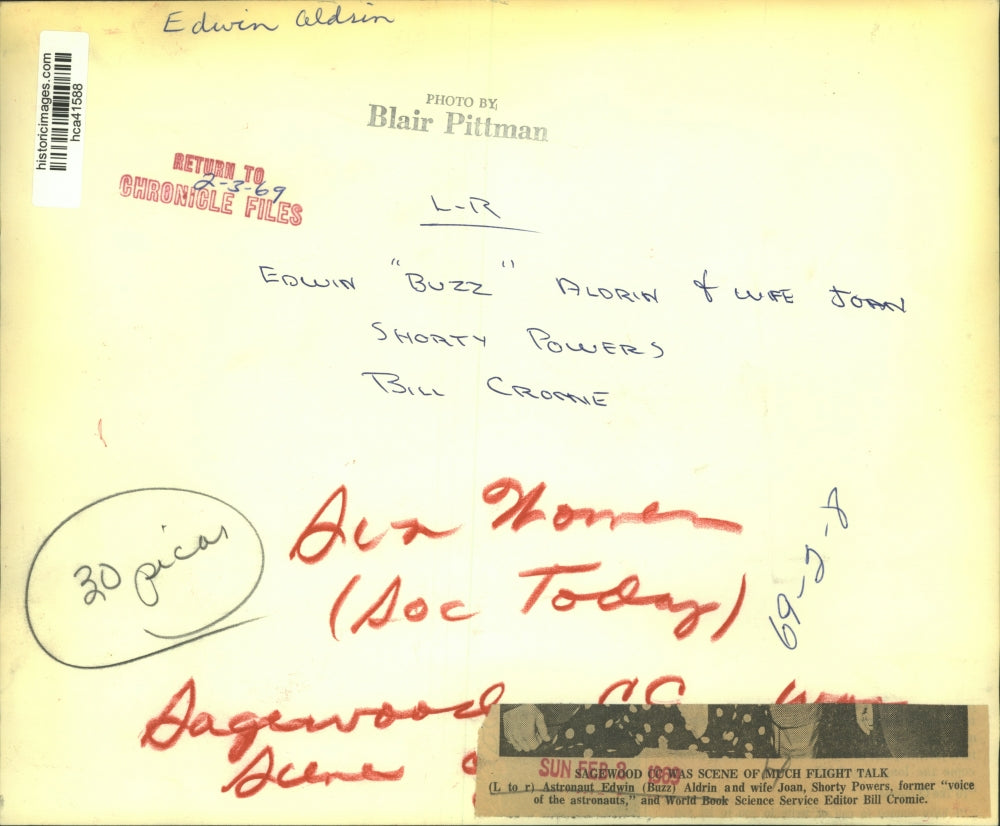 Edwin Aldrin
historicimages.com
hca41588
PHOTO BY
Blair Pittman
RETURN TO
2-3-69
CHRONICLE FILES
L-R
EDWIN "BUZZ" ALDRIN & WIFE JOAN
SHORTY POWERS
BILL CROMIE
30 picas
Sun Women
(Soc Today)
69-2-8
Sagewood CC was
Scene
SUN FEB 2 1969
SAGEWOOD CC WAS SCENE OF MUCH FLIGHT TALK
(L to r) Astronaut Edwin (Buzz) Aldrin and wife Joan, Shorty Powers, former "voice
of the astronauts," and World Book Science Service Editor Bill Cromie.